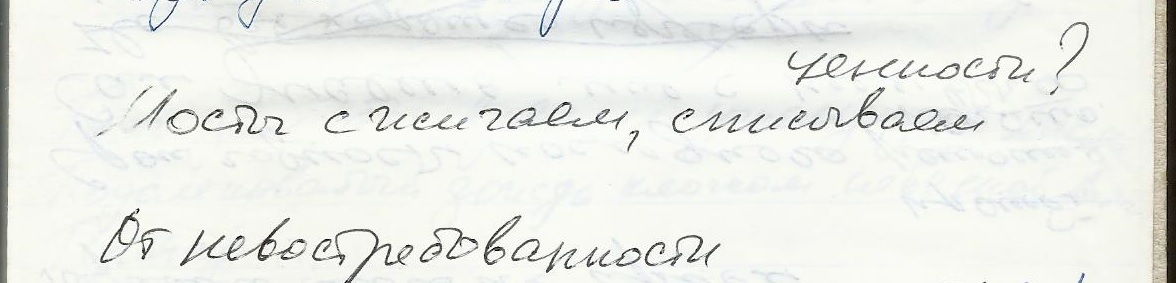 ценности?
Мосты сжигаем, списываем
От невостребованности